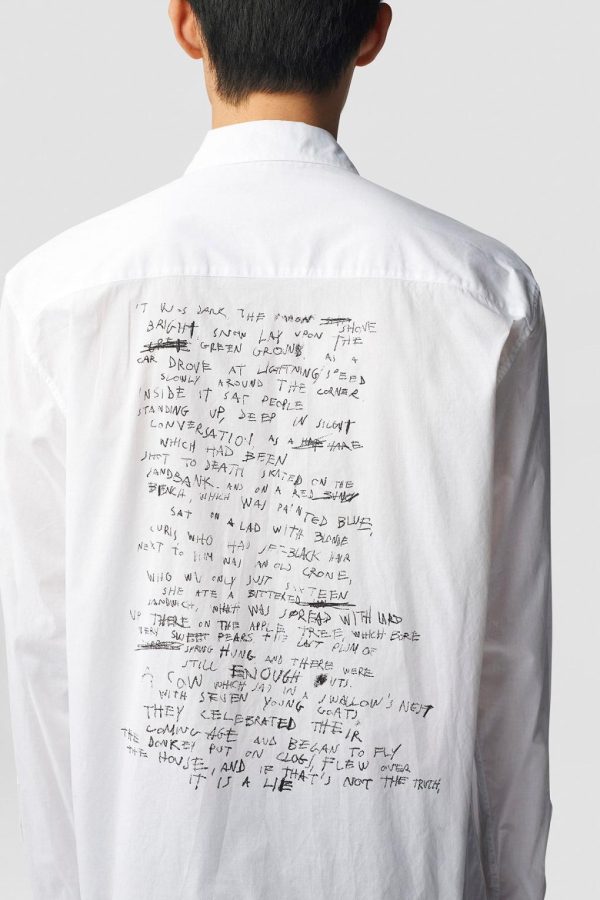 IT WAS DARK, THE MOON SHONE
BRIGHT SNOW LAY UPON THE
GREEN GROUND, AS A
CAR DROVE AT LIGHTNING SPEED
SLOWLY AROUND THE CORNER
INSIDE IT SAT PEOPLE
STANDING UP, DEEP IN SILENT
CONVERSATION, AS A HARE
WHICH HAD BEEN
SHOT TO DEATH SKATED ON THE
SANDBANK. AND ON A RED
BENCH, WHICH WAS PAINTED BLUE,
SAT ON A LAD WITH BLONDE
CURLS WHO HAD JET-BLACK HAIR
NEXT TO HIM WAS AN OLD CRONE,
WHO ONLY JUST SIXTEEN
SHE ATE A BUTTERED
SANDWICH, WHAT WAS SPREAD WITH LARD
UP THERE ON THE APPLE TREE, WHICH BORE
VERY SWEET PEARS THE LAST PLUM OF
SPRING HUNG AND THERE WERE
STILL ENOUGH NUTS.
A COW WHICH SAT IN A SWALLOW'S NEST
WITH SEVEN YOUNG GOATS,
THEY CELEBRATED THEIR
COMING AGE AND BEGAN TO FLY
THE DONKEY PUT ON CLOGS, FLEW OVER
THE HOUSE, AND IF THAT'S NOT THE TRUTH,
IT IS A LIE